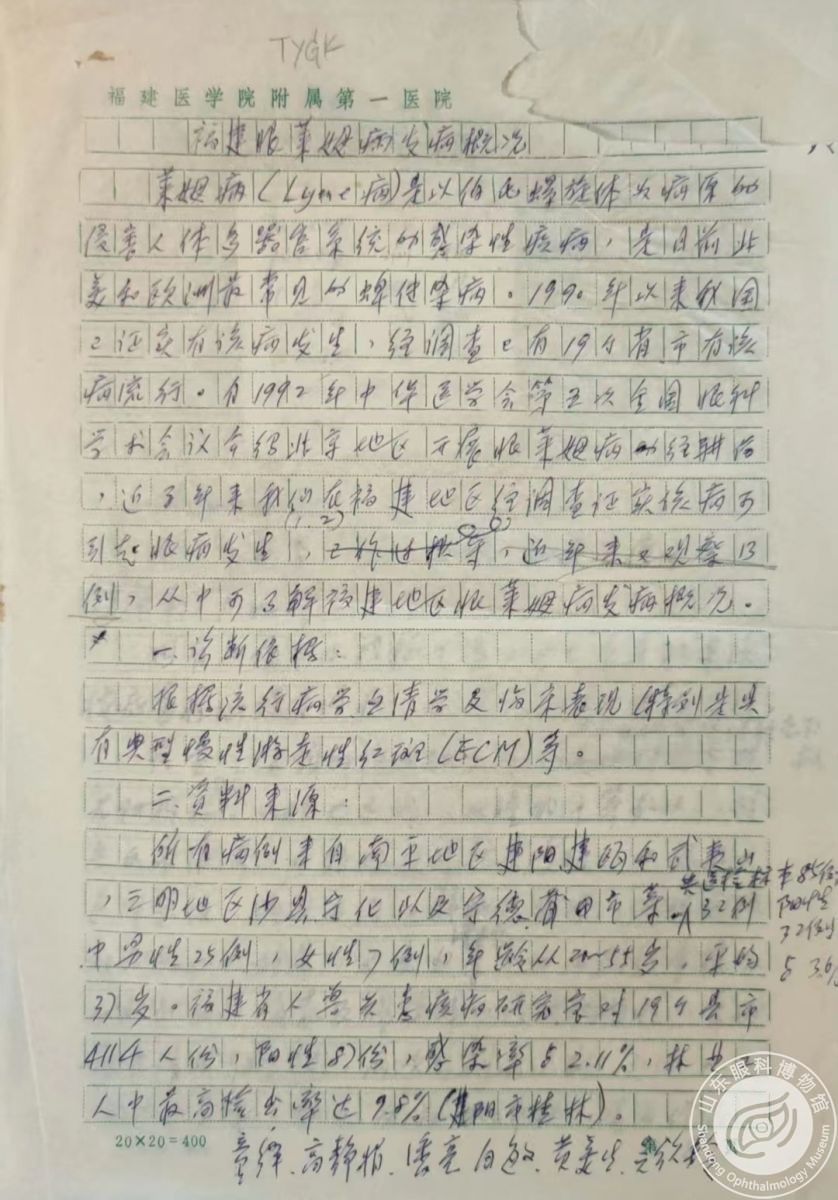 TYGK
福建医学院附属第一医院
福建眼莱姆病发病概况
莱姆病(Lyme病)是以伯氏螺旋体为病原的
侵害人体多器官系统的感染性疾病,是目前北
美和欧洲最常见的蜱传染病。1990年以来我国
已证实有该病发生,经调查已有19个省市有该
病流行。自1992年中华医学会第五次全国眼科
学术会议介绍北京地区开展眼莱姆病的
,近3年来我们在福建地区经调查证实该病可
(1,2)
引起眼病发生,近年来又观察13
例,从中可了解福建地区眼莱姆病发病概况。
一、诊断依据:
根据流行病学、血清学及临床表现(特别是具
有典型慢性游走性红斑(ECM)等。
二、资料来源:
所有病例来自南平地区建阳建瓯和武夷山
,三明地区沙县宁化以及宁德、莆田市等 32例
中男性25例,女性7例,年龄从20~55岁,平均
37岁。福建省人兽共患疾病研究室对19个县市
4114人份,阳性87份,感染率占2.11%,林业工
人中最高检出率达9.8%(建阳市桂林)。
85份
阳性
32例
20×20=400
高静娟、潘亮
山东眼科博物馆
Shandong Ophthalmology Museum